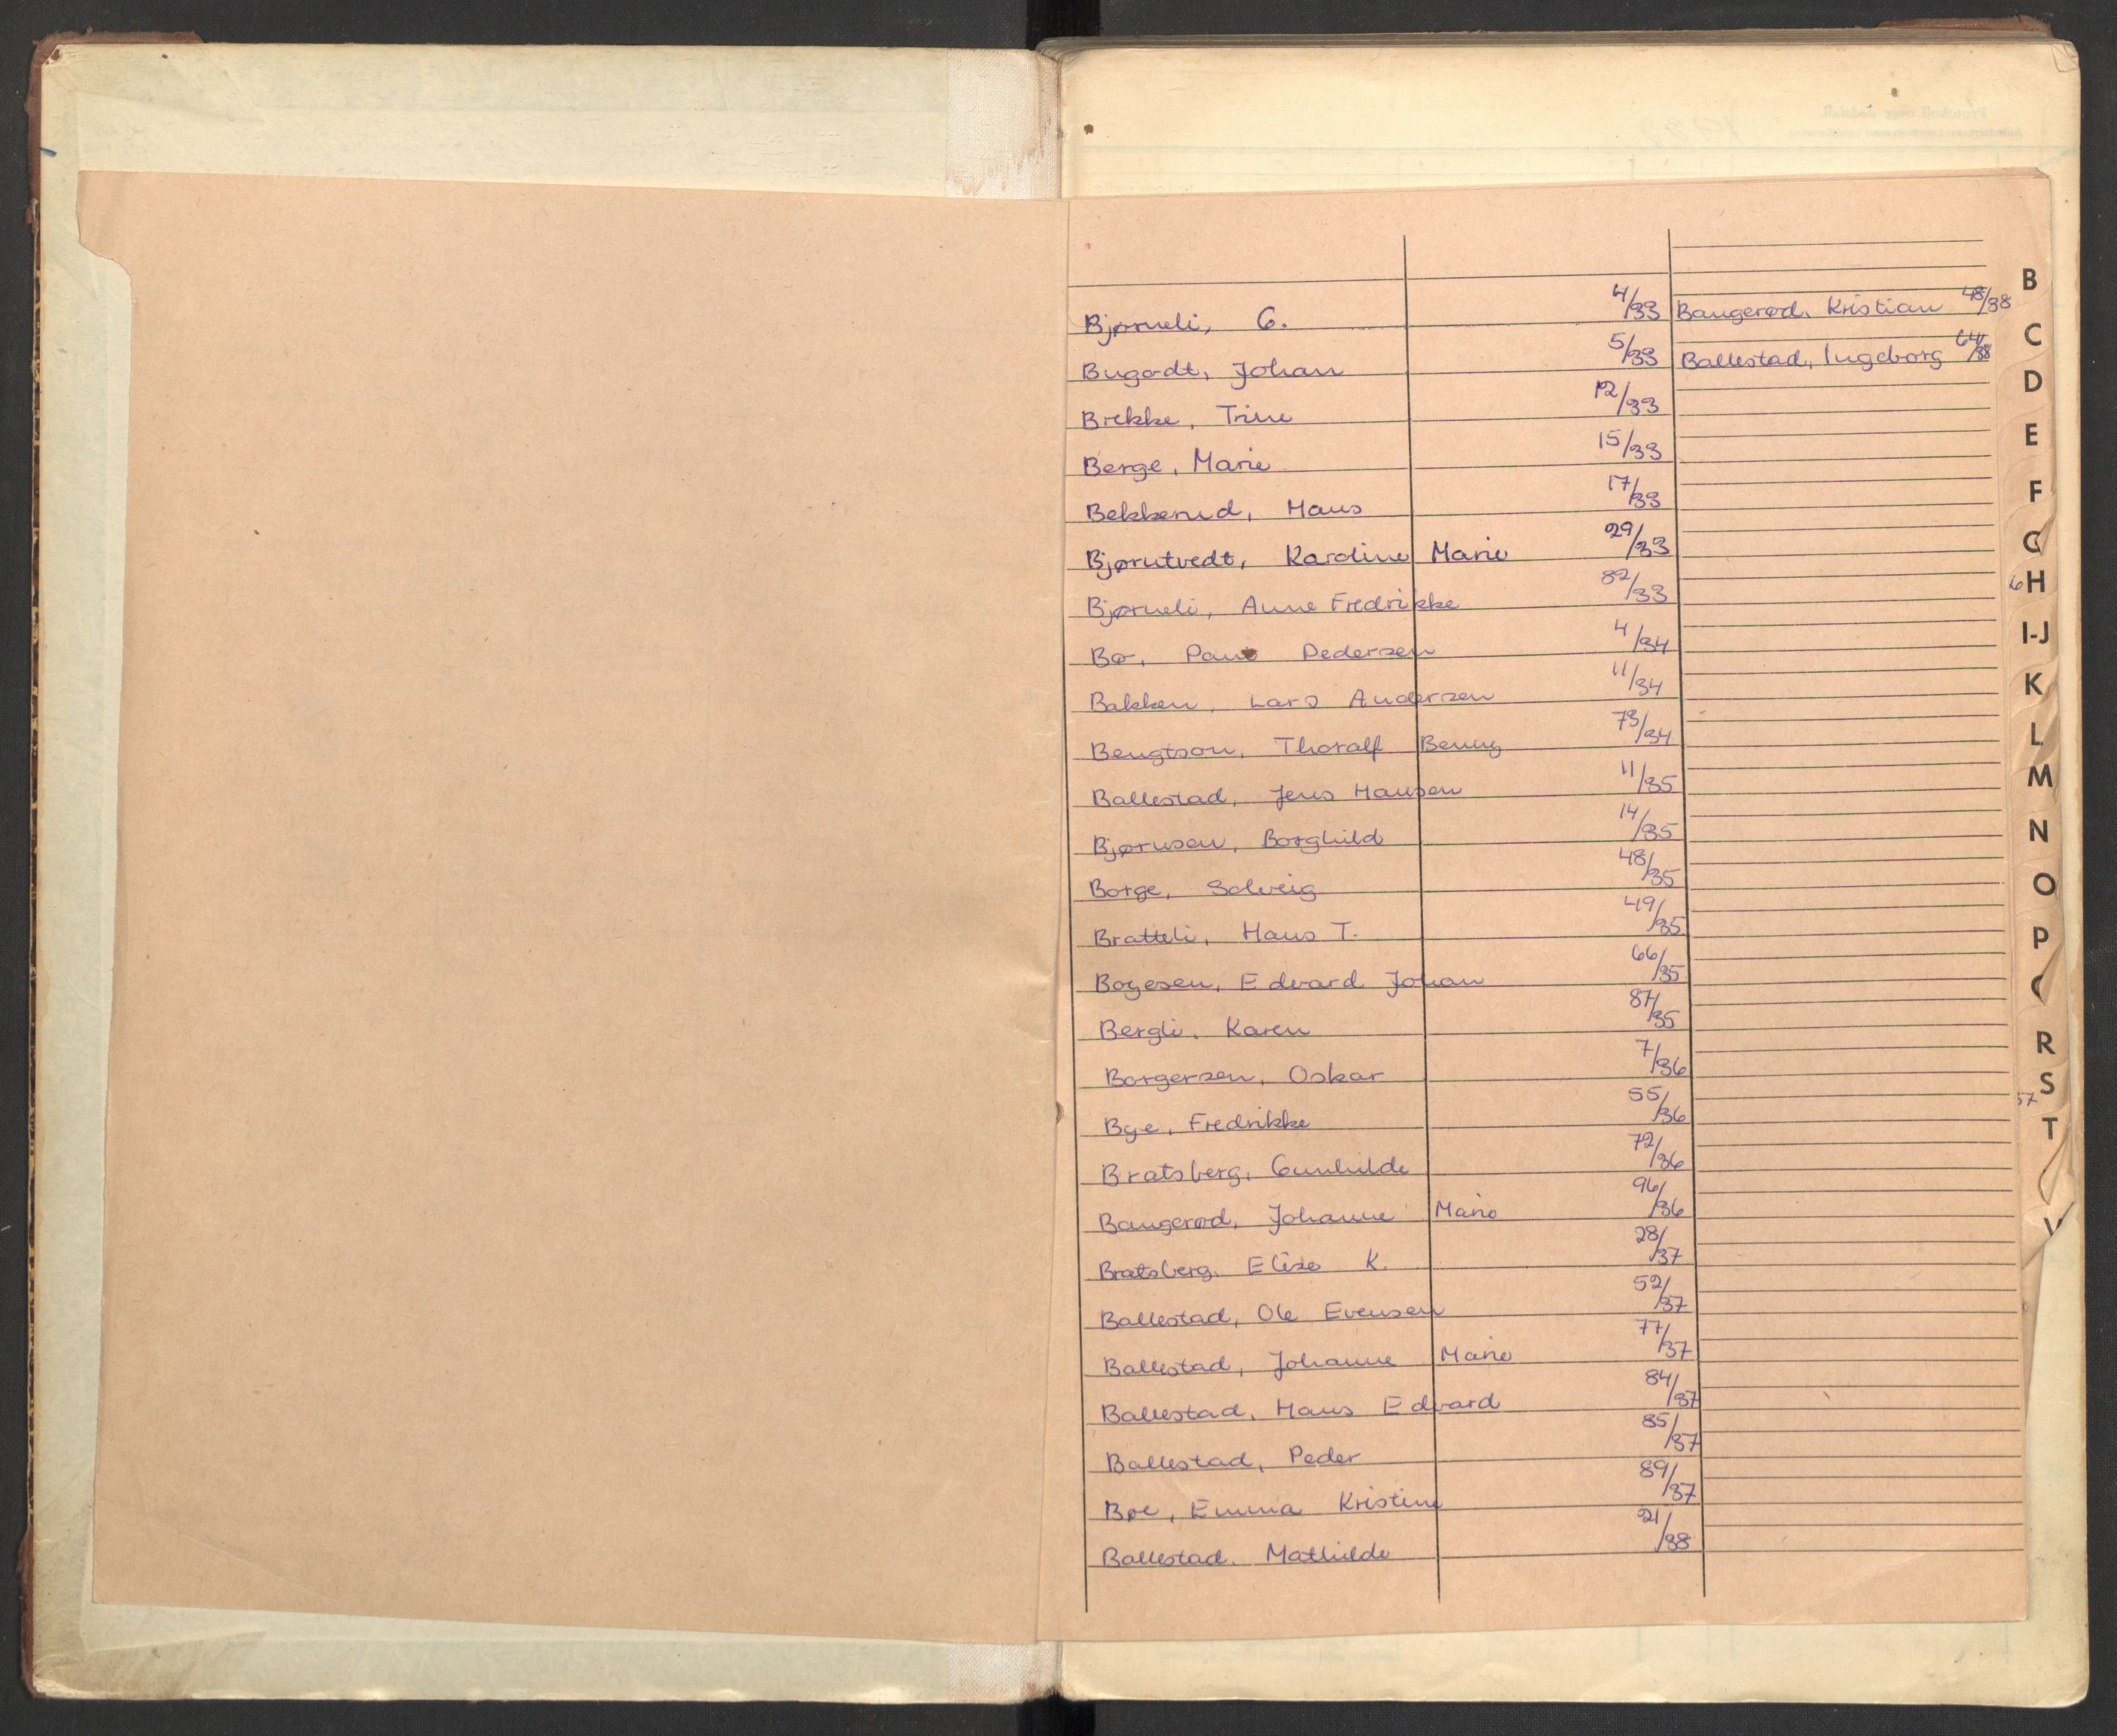 Bjørneli, G. 4/33
Bugødt, Johan 5/33
Brekke, Trine 12/33
Berge, Marie 15/33
Bekkerud, Hans 17/33
Bjørntvedt, Karoline Marie 29/33
Bjørneli, Anne Fredrikke 82/33
Bø, Paul Pedersen 4/34
Bakken, Lars Andersen 11/34
Bengtson, Thoralf Benny 73/34
Ballestad, Jens Hansen 11/35
Bjørnsen, Borghild 14/35
Borge, Solveig 48/35
Bratteli, Hans T. 49/35
Boyesen, Edvard Johan 66/35
Bergli, Karen 87/35
Borgersen, Oskar 7/36
Bye, Fredrikke 55/36
Bratsberg, Gunhilde 72/36
Baugerød, Johanne Marie 96/36
Bratsberg, Elise K. 28/37
Ballestad, Ole Evensen 52/37
Ballestad, Johanne Marie 77/37
Ballestad, Hans Edvard 84/37
Ballestad, Peder 85/37
Bøe, Emma Kristine 89/37
Ballestad, Mathilde 21/38
Baugerød, Kristian 48/38
Ballestad, Ingeborg 64/38
B
C
D
E
F
G
H
I-J
K
L
M
N
O
P
R
S
T
V